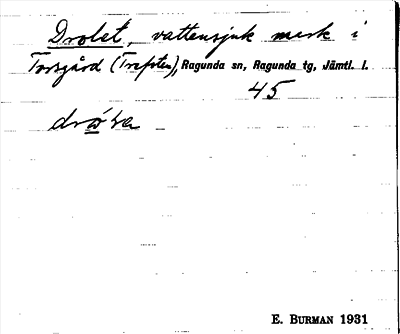 Drolet, vattensjuk mark i
Torsgård (Trefoten), Ragunda sn, Ragunda tg, Jämtl. l.
45
E. BURMAN 1931